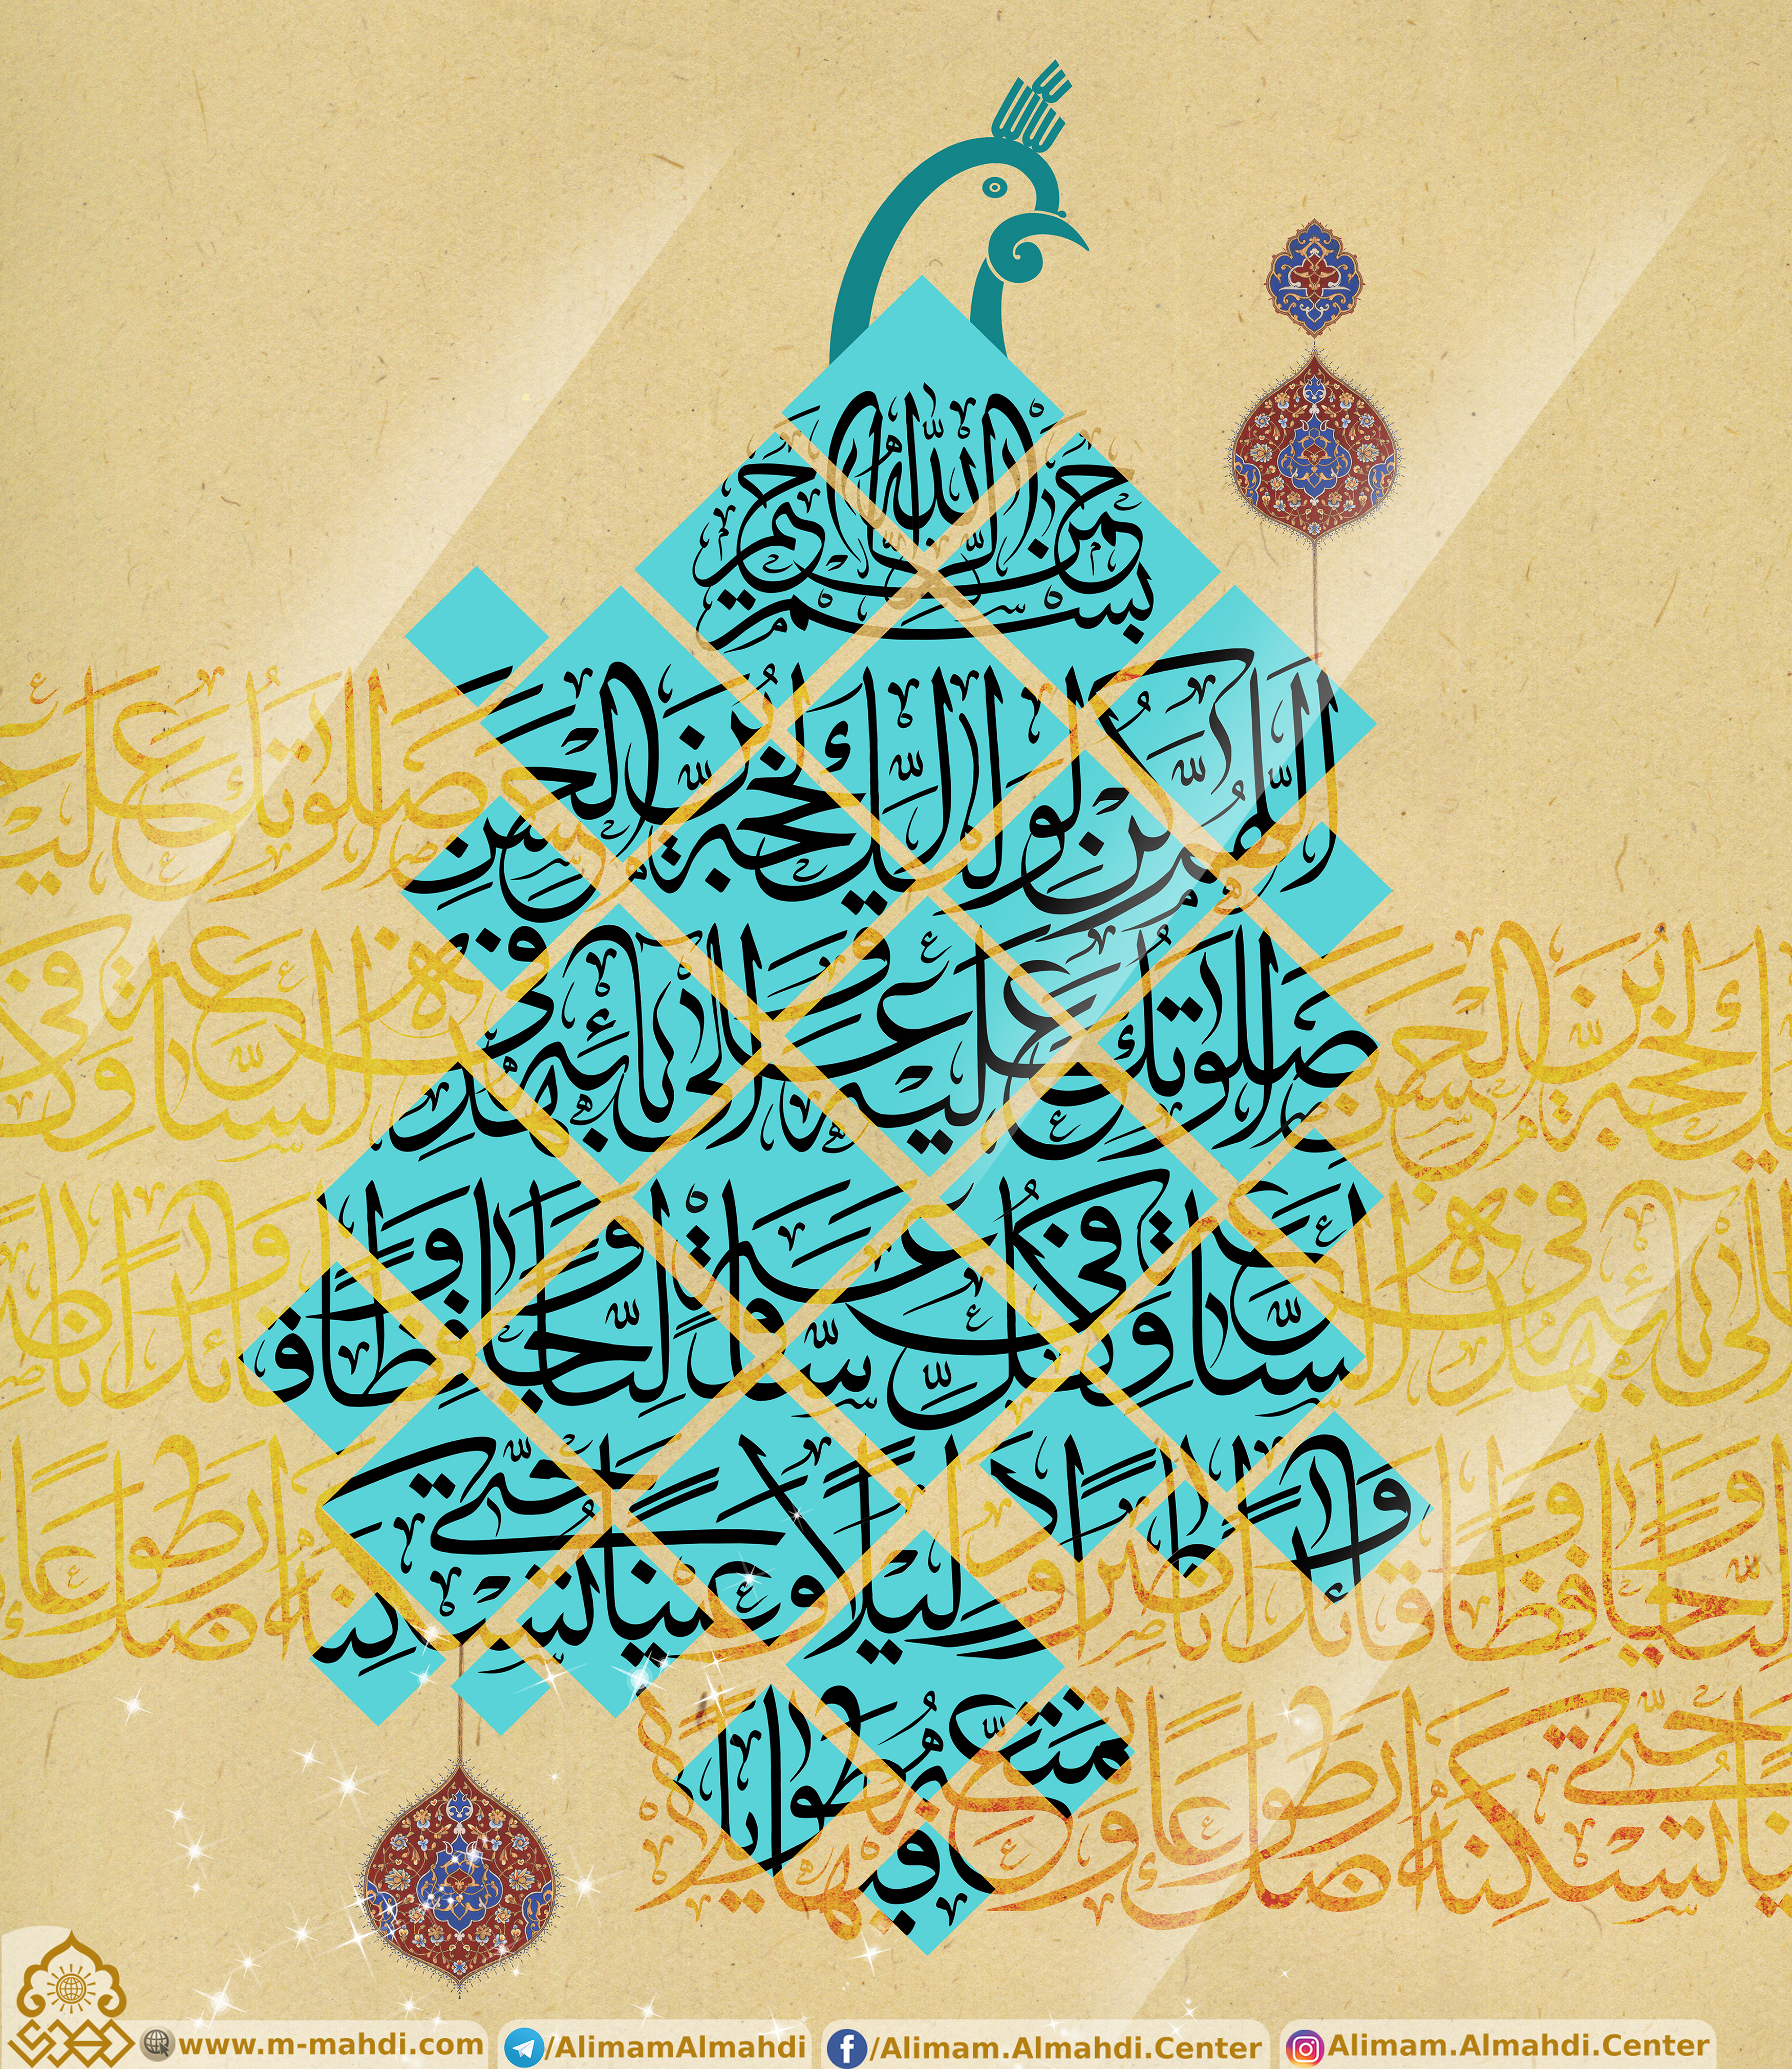 بسم الله الرحمن الرحيم
اللهم كن لوليك الحجة بن الحسن
صلواتك عليه وعلى آبائه في هذه
الساعة وفي كل ساعة وليا وحافظا
وقائدا وناصرا ودليلا وعينا حتى تسكنه
أرضك طوعا وتمتعه فيها طويلا
www.m-mahdi.com
/AlimamAlmahdi
/Alimam.Almahdi.Center
Alimam.Almahdi.Center